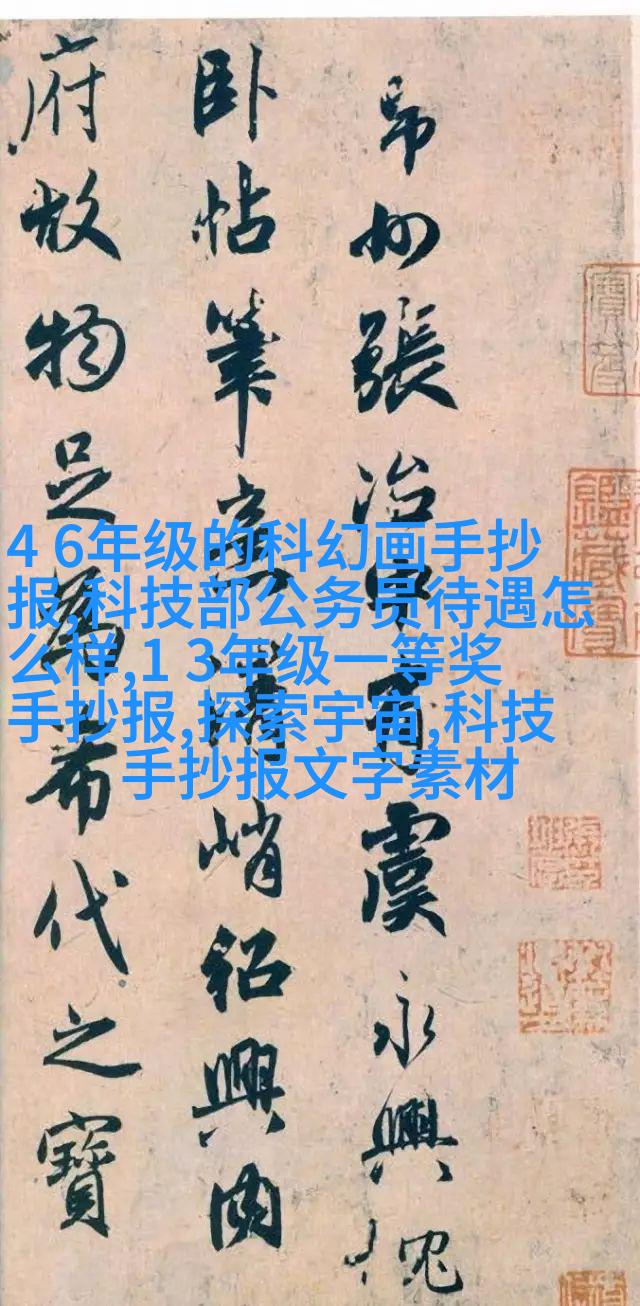 州張冶中有虞永興愧
卧帖筆意清峭紹興内
府故物足為希代之寶
4 6年级的科幻画手抄
报,科技部公务员待遇怎
么样,1 3年级一等奖
手抄报,探索宇宙,科技
手抄报文字素材